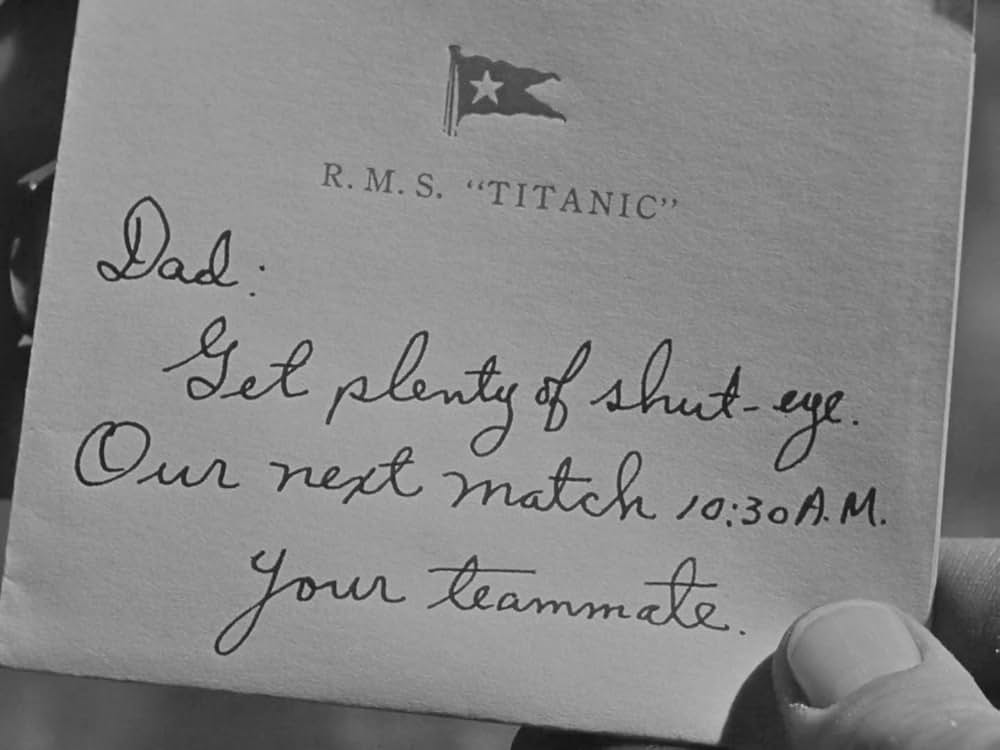 R. M. S. “TITANIC”
Dad:
Get plenty of shut-eye.
Our next match 10:30 A.M.
Your teammate.